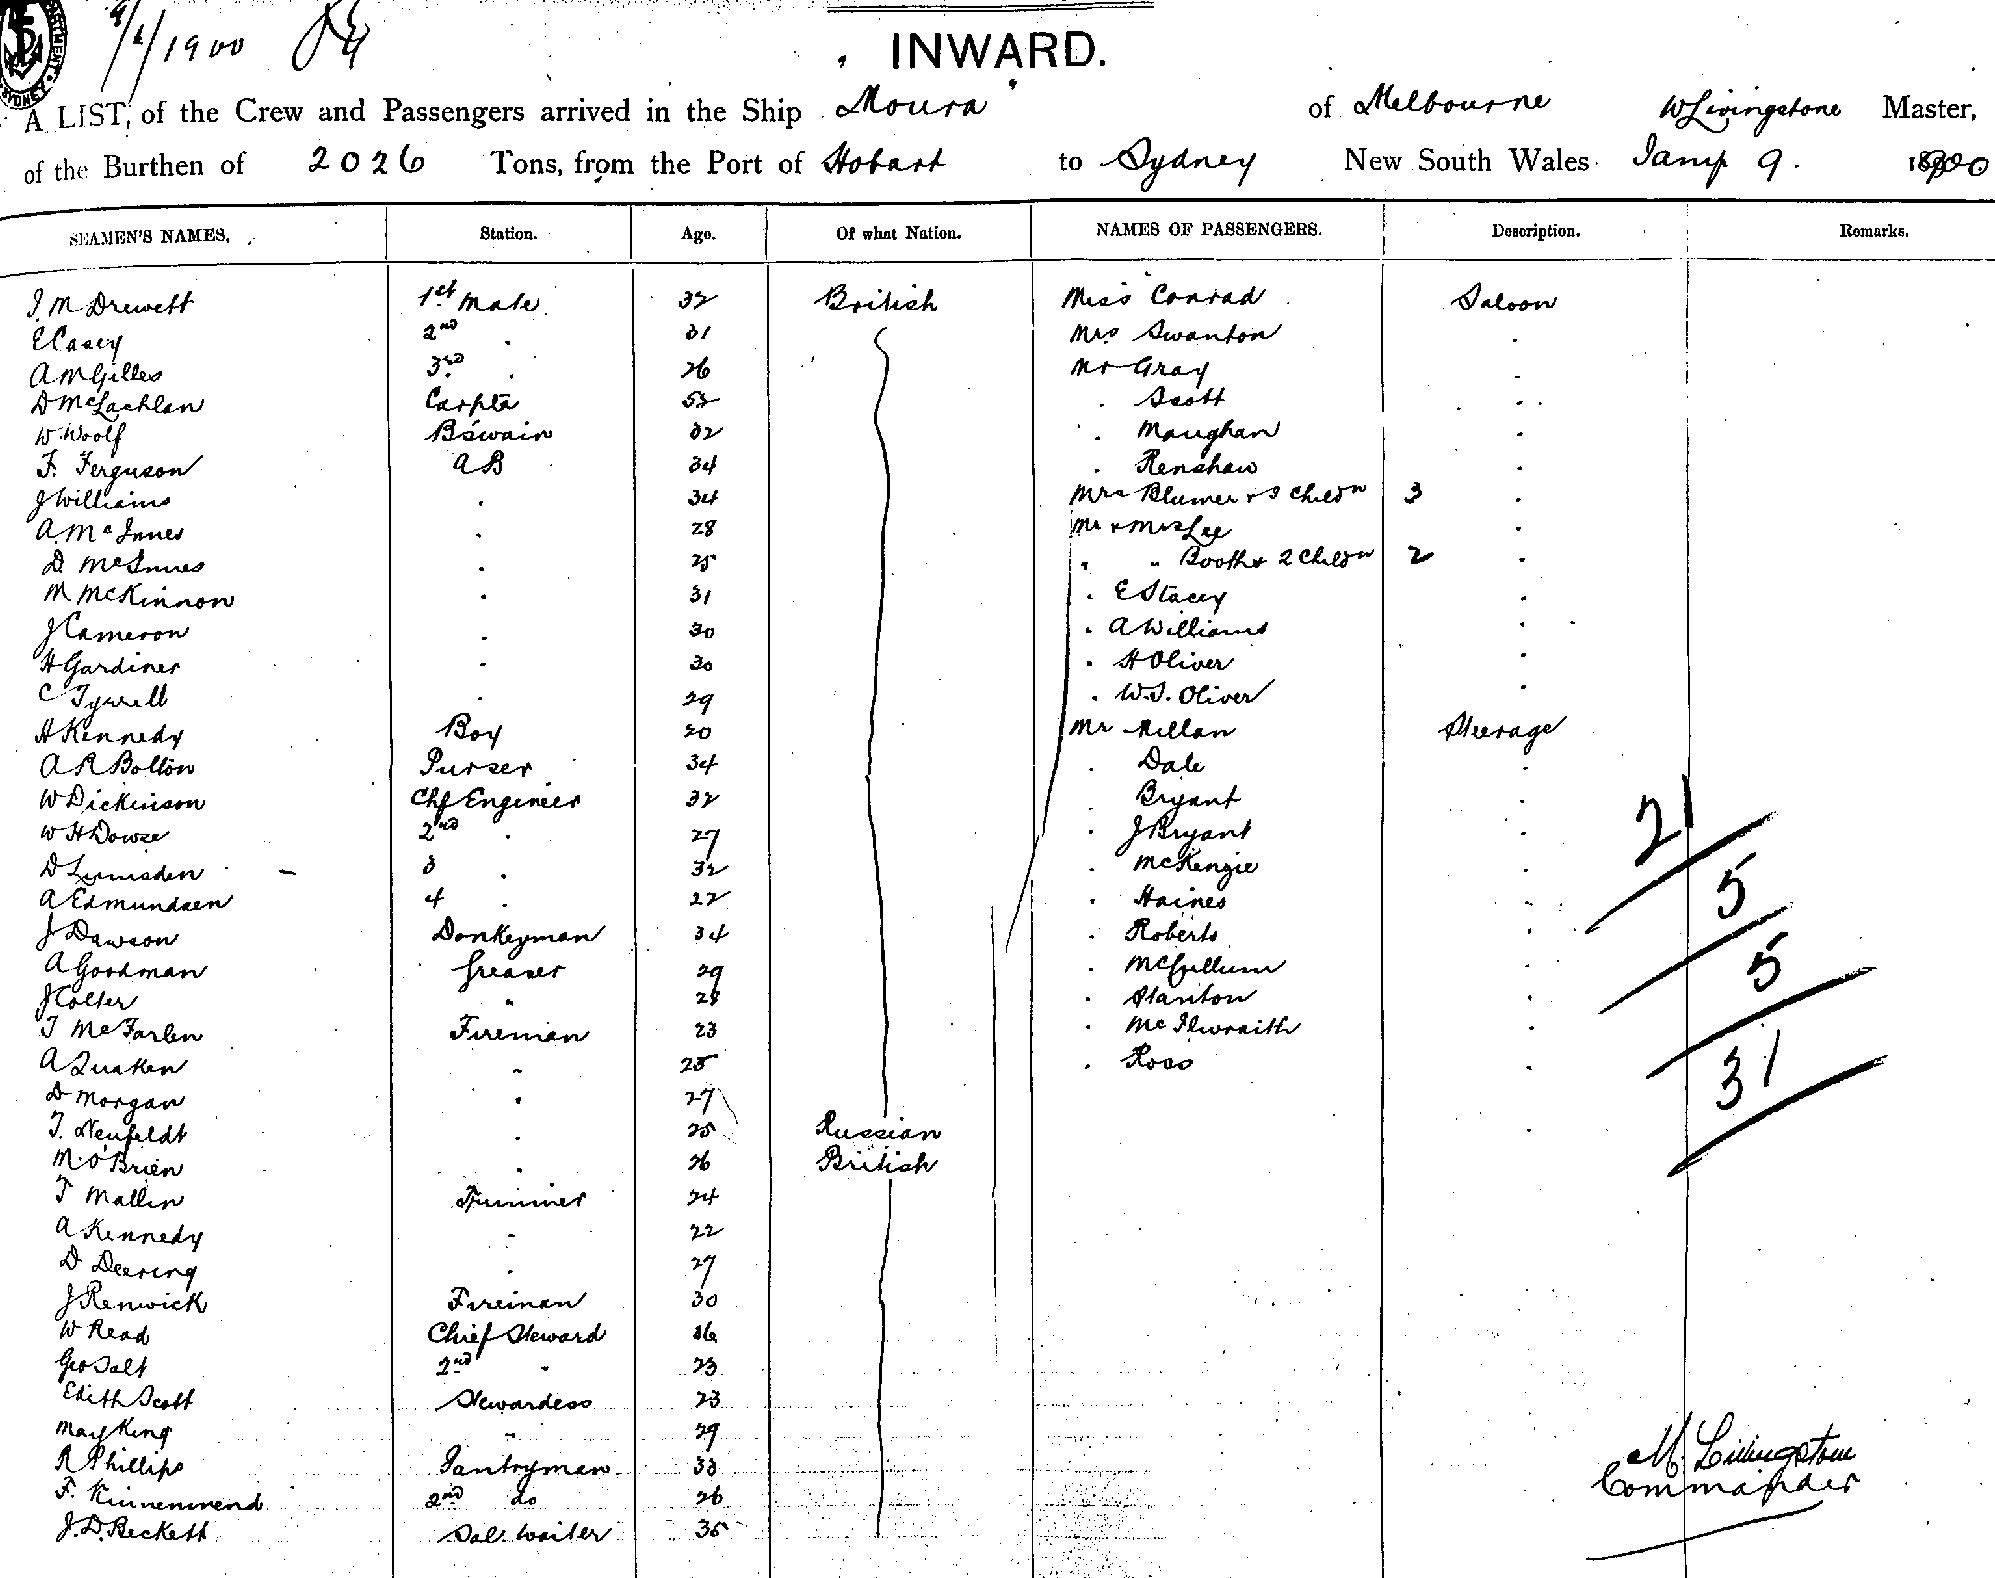 9/1/1900
INWARD.
A LIST, of the Crew and Passengers arrived in the Ship Moura of Melbourne W Livingstone Master,
of the Burthen of 2026 Tons, from the Port of Hobart to Sydney New South Wales Jany 9. 1900
SEAMEN'S NAMES. Station. Age. Of what Nation. NAMES OF PASSENGERS. Description. Remarks.
J. M Drewett 1st Mate 32 British Miss Conrad Saloon
E Casey 2nd " 31 Mrs Swanton "
A M Gilles 3rd " 26 Mr Gray "
D McLachlan Carptr 52 " Scott "
W. Woolf B'swain 32 " Maughan "
F. Ferguson AB 34 " Renshaw "
J Williams " 34 Mrs Blumer + 3 Childn 3 "
A. McInnes " 28 Mr + Mrs Lee "
D McInnes " 25 " " Booth + 2 Childn 2 "
M McKinnon " 31 " E Stacey "
J Cameron " 30 " A Williams "
H Gardiner " 30 " H Oliver "
C Tyrrell " 29 " W. J. Oliver "
H Kennedy Boy 20 Mr Millan Steerage
A R Bolton Purser 34 " Dale "
W Dickinson Chf Engineer 32 " Bryant " 21
W H Dowse 2nd " 27 " J Bryant "
D Lumsden 3 " 32 " McKenzie " 5
A Edmundsen 4 " 22 " Haines "
J Dawson Donkeyman 34 " Roberts "
A Goodman Greaser 29 " McGillum " 5
J Colter " 28 " Stanton "
T McFarlen Fireman 23 " McIlwraith "
A Quaken " 25 " Ross " 31
D Morgan " 27
T. Neufeldt " 25 Russian "
M. O'Brien " 26 British
T Mallin Trimmer 24
A Kennedy " 22
D Deering " 27
J Renwick Fireman 30
W Read Chief Steward 36
Geo Salt 2nd " 23
Edith Scott Stewardess 23
May King " 29
R Phillips Pantryman 33 M. Livingstone
F. Kinnenmend 2nd do 26 Commander
J. D. Beckett Sal. Waiter 35